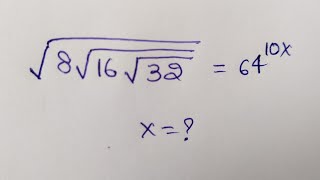 √8√16√32 = 64^10x
x = ?